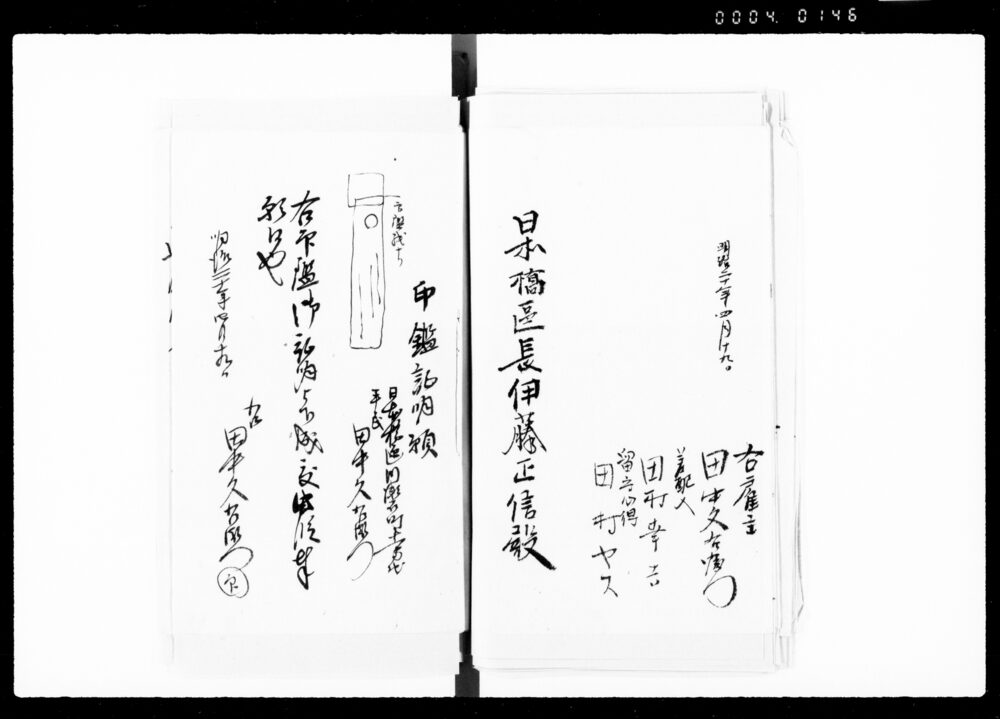 0004.0146
明治二十一年四月十九日
右雇主
田中久右衛門
差配人
田村幸吉
留守心得
田村ヤス
日本橋區長伊藤正信殿
印鑑証明願
日本橋區
平民
田中久右衛門
右印鑑御証明被成下度此段奉
願候也
明治二十一年四月十九日
右
田中久右衛門
印